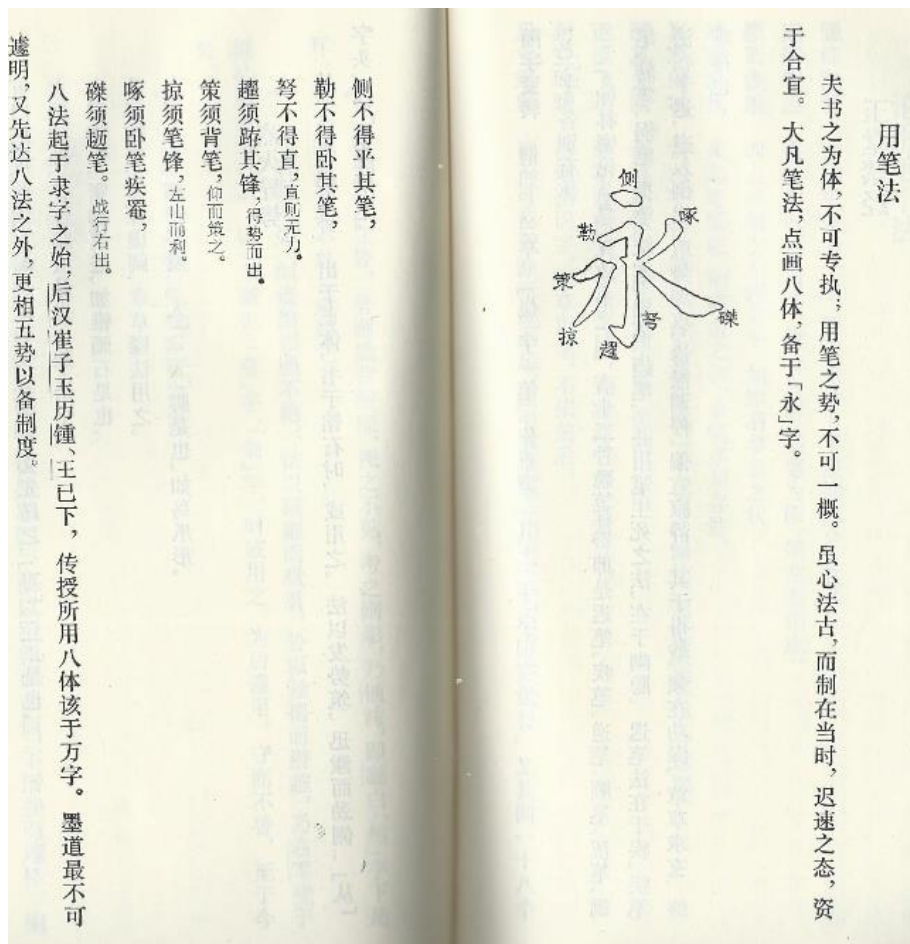 用笔法
夫书之为体，不可专执；用笔之势，不可一概。虽心法古，而制在当时，迟速之态，资
于合宜。大凡笔法，点画八体，备于「永」字。
侧
啄
勒
策
掠
趯
弩
磔
侧不得平其笔，
勒不得卧其笔，
弩不得直，直则无力。
趯须踌其锋，得势而出。
策须背笔，仰而策之。
掠须笔锋，左出而利。
啄须卧笔疾罨，
磔须趞笔。战行右出。
八法起于隶字之始，后汉崔子玉历锺、王已下，传授所用八体该于万字。墨道最不可
遽明，又先达八法之外，更相五势以备制度。